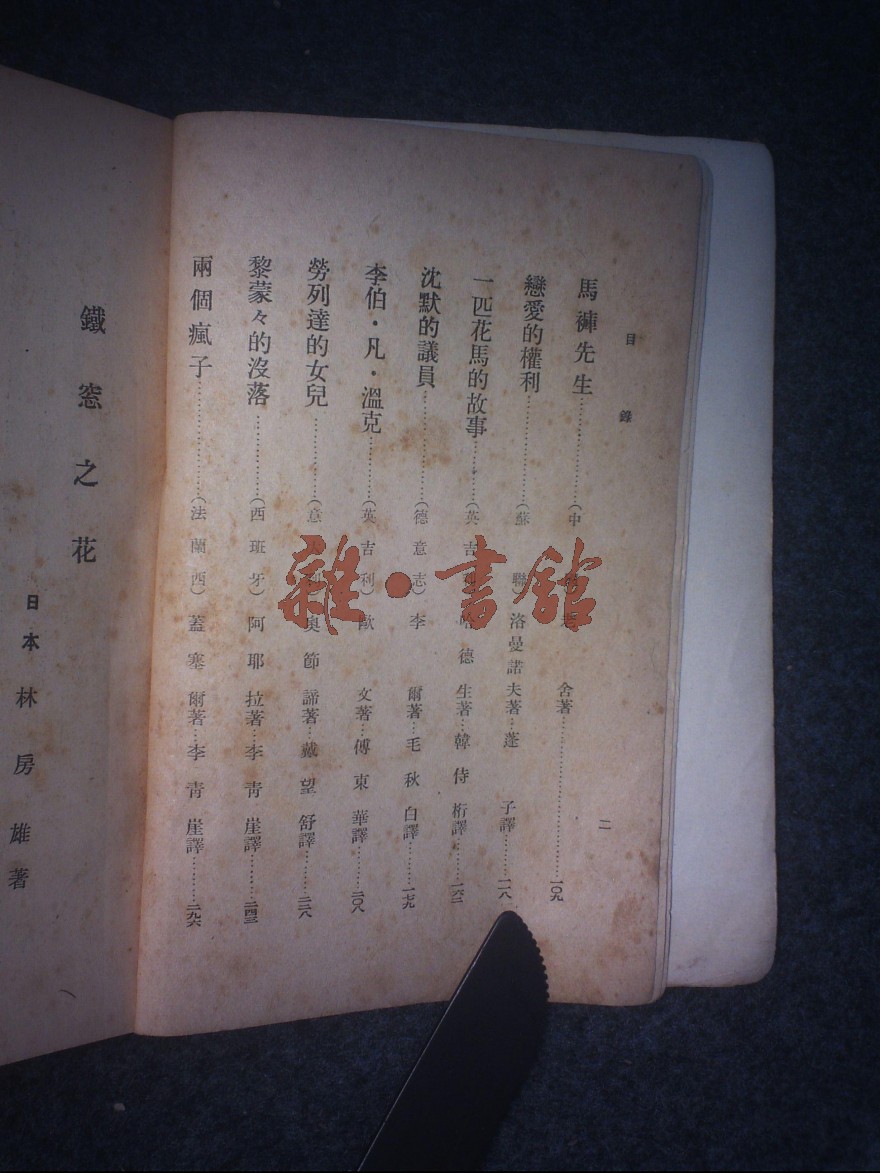 目錄
二
馬褲先生……(中 舍著……一〇九
戀愛的權利……(蘇聯)洛曼諾夫著…蓬子譯……一一八
一匹花馬的故事……(英吉利)哈德生著…韓侍桁譯……一六二
沈默的議員……(德意志)李爾著…毛秋白譯……一七九
李伯・凡・溫克……(英吉利)歐文著…傅東華譯……二〇八
勞列達的女兒……(意大利)奧節諦著…戴望舒譯……二二八
黎蒙々的沒落……(西班牙)阿耶拉著…李青崖譯……二四三
兩個瘋子……(法蘭西)蓋塞爾著…李青崖譯……二九六
鐵窓之花
日本林房雄著
雜・書館